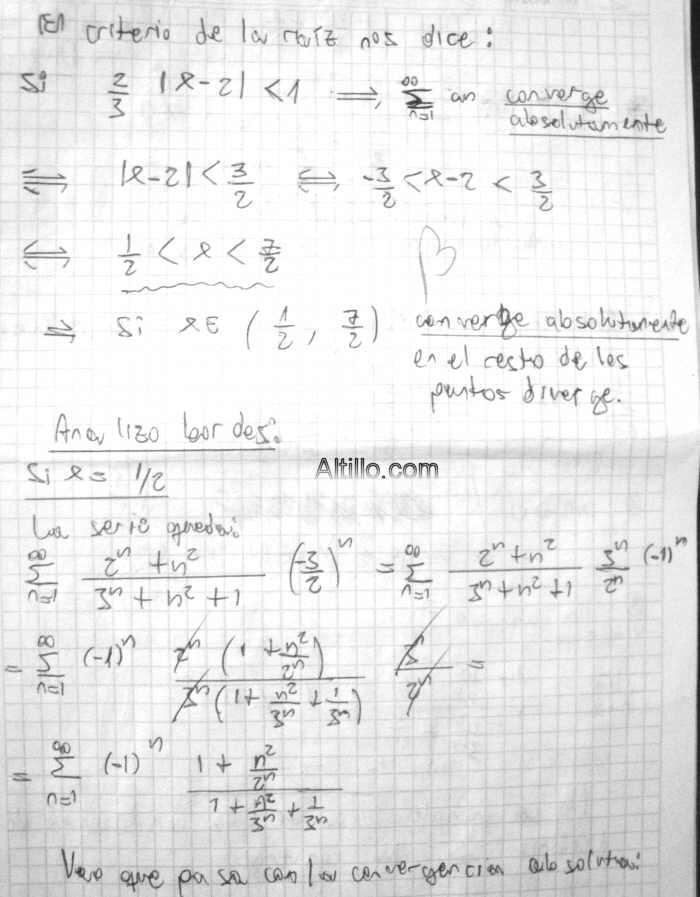 El criterio de la raíz nos dice:
Si 2/3 |x-2| < 1 ⟹ ∑_{n=1}^{∞} an converge
absolutamente
⟺ |x-2| < 3/2 ⟺ -3/2 < x-2 < 3/2
⟺ 1/2 < x < 7/2
⟹ Si x∈ (1/2, 7/2) converge absolutamente
en el resto de los
puntos diverge.
Analizo bordes:
Altillo.com
Si x = 1/2
La serie queda:
∑_{n=1}^{∞} (2^n + n^2)/(3^n + n^2 + 1) (-3/2)^n = ∑_{n=1}^{∞} (2^n + n^2)/(3^n + n^2 + 1) 3^n/2^n (-1)^n
= ∑_{n=1}^{∞} (-1)^n 2^n (1 + n^2/2^n)/(3^n (1 + n^2/3^n + 1/3^n)) 3^n/2^n =
= ∑_{n=1}^{∞} (-1)^n (1 + n^2/2^n)/(1 + n^2/3^n + 1/3^n)
Veo que pasa con la convergencia absoluta: